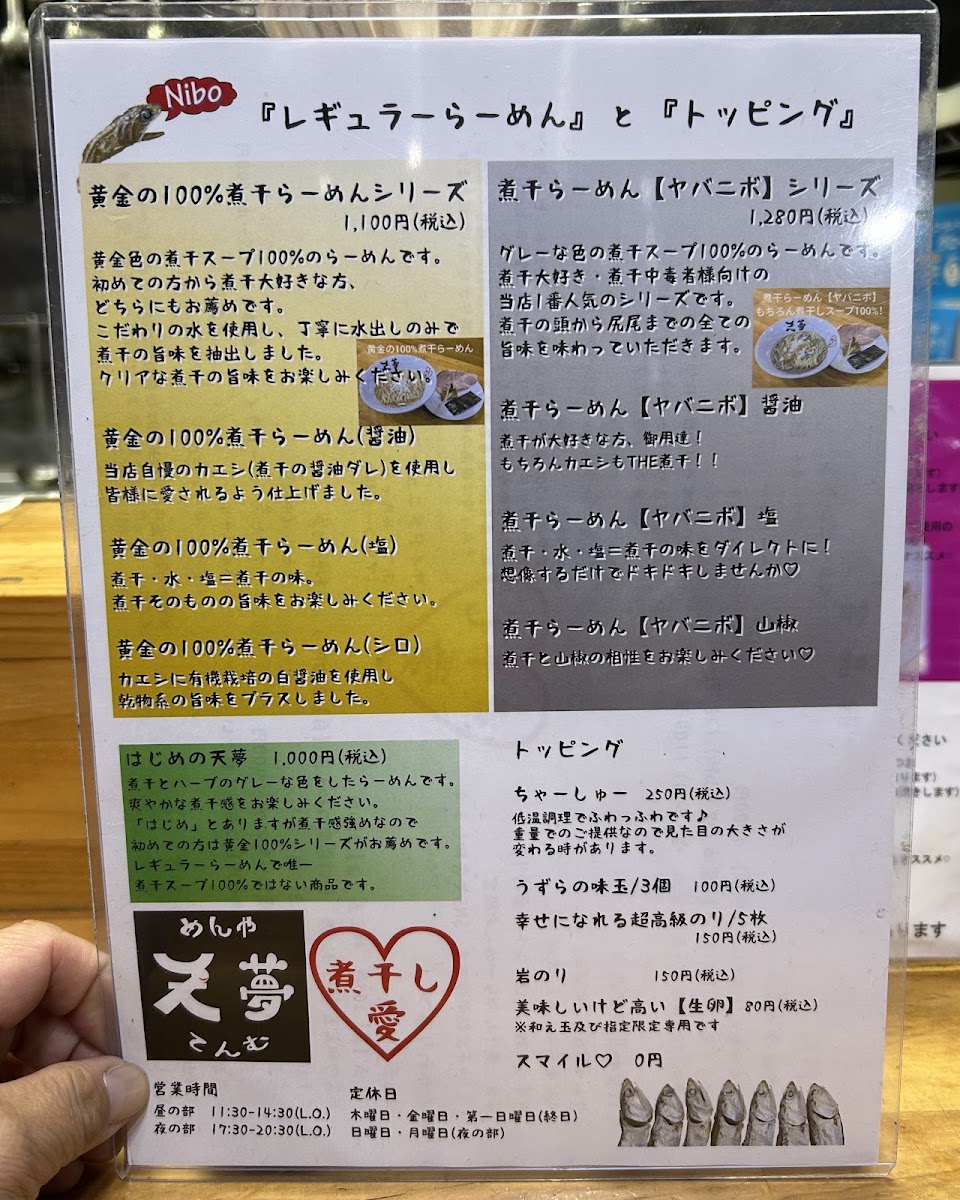 Nibo
『レギュラーらーめん』と『トッピング』
黄金の100%煮干らーめんシリーズ
1,100円(税込)
黄金色の煮干スープ100%のらーめんです。
初めての方から煮干大好きな方、
どちらにもお薦めです。
こだわりの水を使用し、丁寧に水出しのみで
煮干の旨味を抽出しました。
クリアな煮干の旨味をお楽しみください。
黄金の100%煮干らーめん
黄金の100%煮干らーめん(醤油)
当店自慢のカエシ(煮干の醤油ダレ)を使用し
皆様に愛されるよう仕上げました。
黄金の100%煮干らーめん(塩)
煮干・水・塩=煮干の味。
煮干そのものの旨味をお楽しみください。
黄金の100%煮干らーめん(シロ)
カエシに有機栽培の白醤油を使用し
乾物系の旨味をプラスしました。
煮干らーめん【ヤバニボ】シリーズ
1,280円(税込)
グレーな色の煮干スープ100%のらーめんです。
煮干大好き・煮干中毒者様向けの
当店1番人気のシリーズです。
煮干の頭から尻尾までの全ての
旨味を味わっていただきます。
煮干らーめん【ヤバニボ】
もちろん煮干しスープ100%!
煮干らーめん【ヤバニボ】醤油
煮干が大好きな方、御用達!
もちろんカエシもTHE煮干!!
煮干らーめん【ヤバニボ】塩
煮干・水・塩=煮干の味をダイレクトに!
想像するだけでドキドキしませんか♡
煮干らーめん【ヤバニボ】山椒
煮干と山椒の相性をお楽しみください♡
はじめの天夢 1,000円(税込)
煮干とハーブのグレーな色をしたらーめんです。
爽やかな煮干感をお楽しみください。
「はじめ」とありますが煮干感強めなので
初めての方は黄金100%シリーズがお薦めです。
レギュラーらーめんで唯一
煮干スープ100%ではない商品です。
トッピング
ちゃーしゅー 250円(税込)
低温調理でふわっふわです♪
重量でのご提供なので見た目の大きさが
変わる時があります。
うずらの味玉/3個 100円(税込)
幸せになれる超高級のり/5枚
150円(税込)
岩のり 150円(税込)
美味しいけど高い【生卵】80円(税込)
※和え玉及び指定限定専用です
スマイル♡ 0円
めんや
天夢
てんむ
煮干し
愛
営業時間
昼の部 11:30-14:30(L.O.)
夜の部 17:30-20:30(L.O.)
定休日
木曜日・金曜日・第一日曜日(終日)
日曜日・月曜日(夜の部)